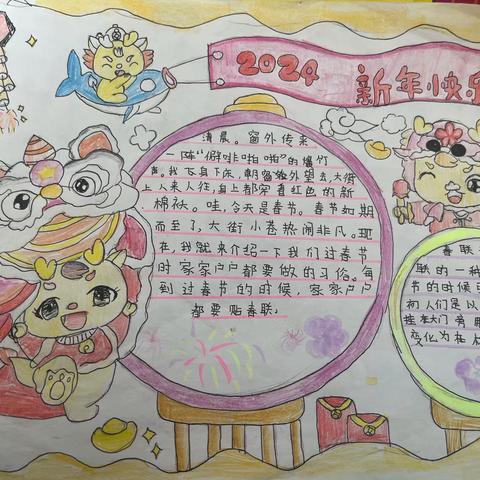 2024
新年快乐
清晨。窗外传来
阵"僻啡啪啪"的爆竹
声。我下身下床,朝窗外望去,大街
上人来人往,身上都穿着红色的新
棉袄。哇,今天是春节。春节如期
而至了,大街小巷热闹非凡。现
在,我就来介绍一下我们过春节
时家家户户都要做的习俗。每
到过春节的时候,家家户户
都要贴春联。
春联
联的一种
节的时候
初人们是以
挂在大门旁
变化为在